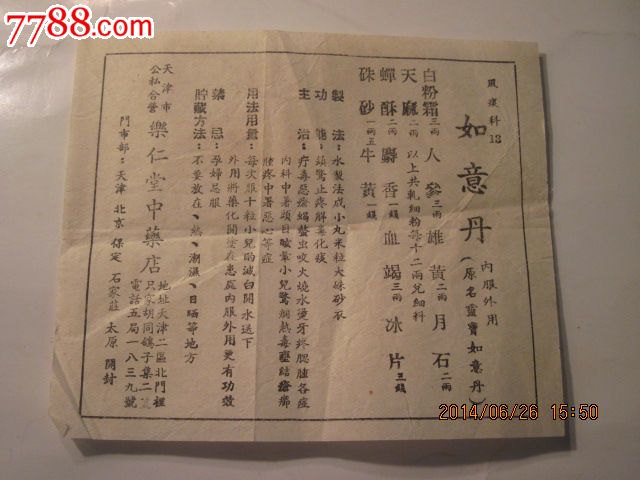 7788.com
中国收藏热线
風痰科13
如意丹 內服外用 (原名靈寶如意丹)
白粉霜三兩 人參三兩 雄黃二兩 月石二兩
天麻二兩 以上共軋細粉每十二兩兌細料
蟬酥二兩 麝香一錢 血竭三兩 冰片三錢
硃砂一兩五 牛黃一錢
製法：水製法成小丸米粒大硃砂衣
功能：鎮驚止疼解毒化痰
主治：疔毒惡瘡蝎螫虫咬火燒水燙牙疼腮腫各症
內科中暑頭眩暈小兒驚癇熱毒壅結
腫疼中暑惡心等症
用法用量：每次服十粒小兒酌減白開水送下
外用將藥化開塗在患處內服外用更有功效
禁忌：孕婦忌服
貯藏方法：不要放在、熱、潮濕、日晒等地方
天津市公私合營 樂仁堂中藥店 地址天津二區北門裡只家胡同鴿子集二號
電話五局一八三九號
門市部：天津 北京 保定 石家莊 太原 開封
2014/06/26 15:50